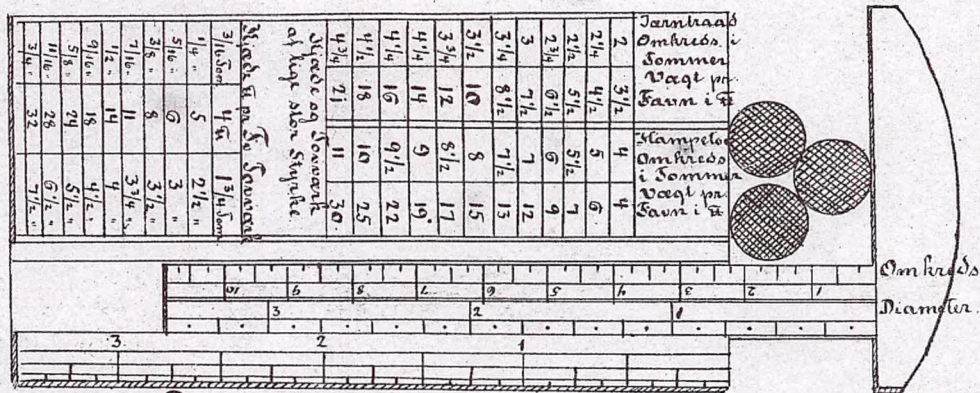 Jærntraads
Omkreds i
Tommer
Vægt pr.
Favn i ℔
Hampetov
Omkreds
i Tommer
Vægt pr.
Favn i ℔
2 3 1/2 4 4
2 1/4 4 1/2 5 6
2 1/2 5 1/2 5 1/2 7
2 3/4 6 1/2 6 9
3 7 1/2 7 12
3 1/4 8 1/2 7 1/2 13
3 1/2 10 8 15
3 3/4 12 8 1/2 17
4 1/4 14 9 19
4 1/4 16 9 1/2 22
4 1/2 18 10 25
4 3/4 21 11 30
Kjæde og Tovværk
af lige stor Styrke
Kjæde ℔ pr Fv Tovværk
3/16 Tom 4 ℔ 1 3/4 Tom
1/4 " 5 2 1/2 "
5/16 " 6 3 "
3/8 " 8 3 1/2 "
7/16 " 11 3 3/4 "
1/2 " 14 4 "
9/16 " 18 4 1/2 "
5/8 " 24 5 1/2 "
11/16 " 28 6 1/2 "
3/4 " 32 7 1/2 "
Omkreds
10 9 8 7 6 5 4 3 2 1
Diameter
3 2 1
3 2 1